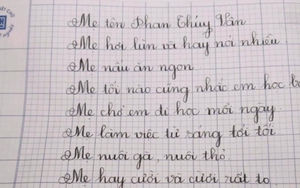 Mẹ tên Phan Thúy Vân
Mẹ hơi lùn và hay nói nhiều
Mẹ nấu ăn ngon
Mẹ tối nào cũng nhắc em học b
Mẹ chở em đi học mỗi ngày
Mẹ làm việc từ sáng tới tối
Mẹ nuôi gà, nuôi thỏ
Mẹ hay cười và cười rất to